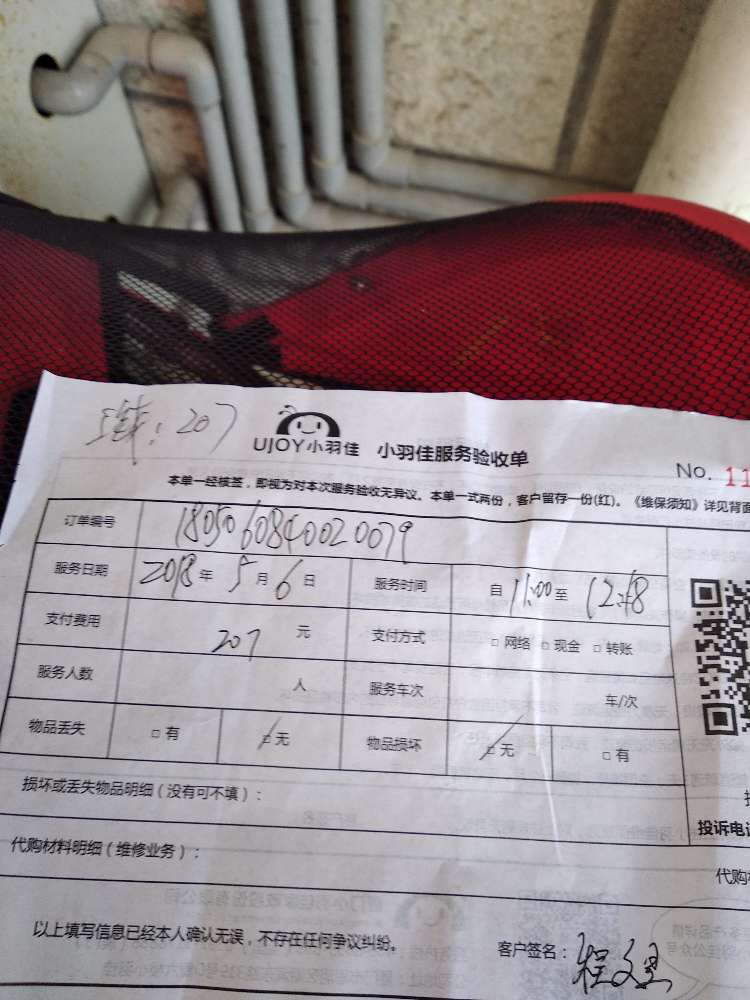 207
UJOY小羽佳 小羽佳服务验收单
No. 11
本单一经核签，即视为对本次服务验收无异议。本单一式两份，客户留存一份(红)。《维保须知》详见背面
订单编号 1805060840020079
服务日期 2018年5月6日 服务时间 自11:00至12:18
支付费用 207元 支付方式 □网络 □现金 □转账
服务人数 人 服务车次 车/次
物品丢失 □有 □无 物品损坏 □无 □有
损坏或丢失物品明细（没有可不填）：
投诉电话
代购材料明细（维修业务）：
代购
以上填写信息已经本人确认无误，不存在任何争议纠纷。
客户签名：程文